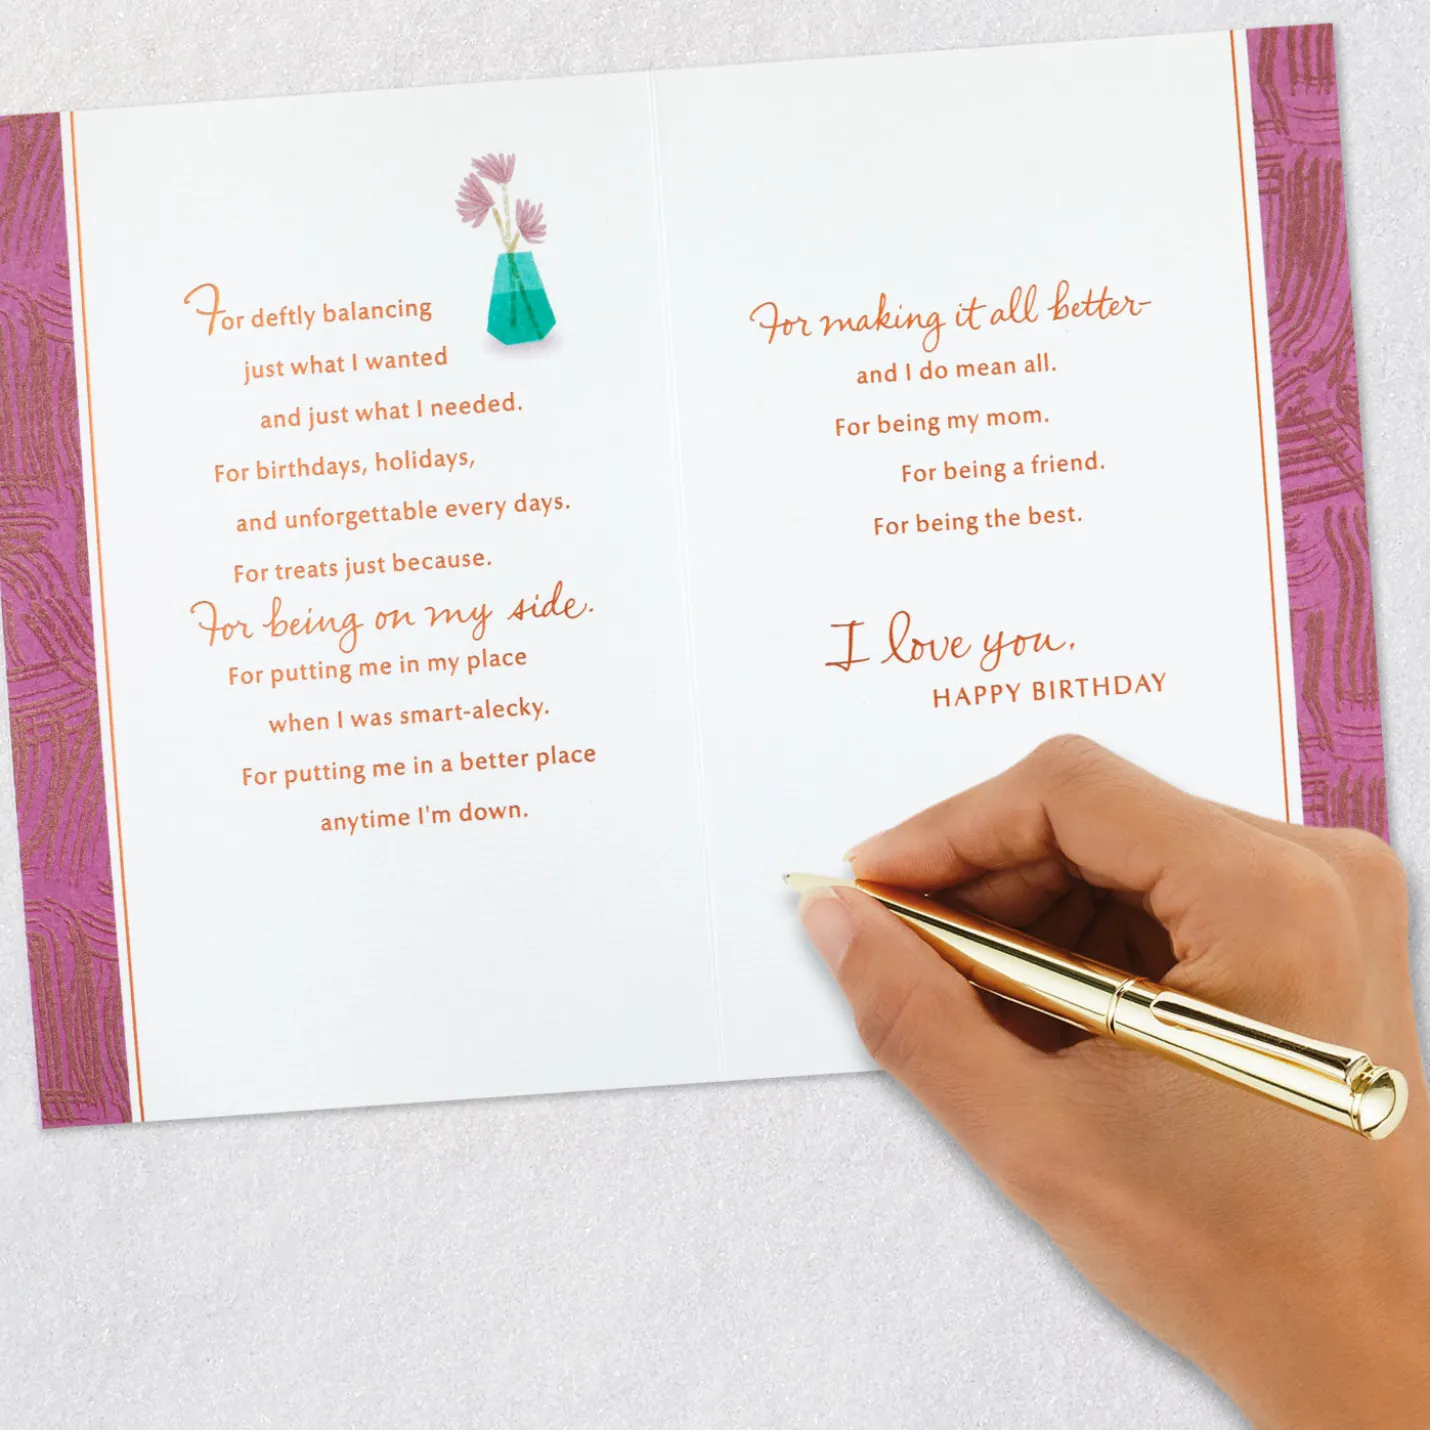 For deftly balancing
just what I wanted
and just what I needed.
For birthdays, holidays,
and unforgettable every days.
For treats just because.
For being on my side.
For putting me in my place
when I was smart-alecky.
For putting me in a better place
anytime I'm down.
For making it all better–
and I do mean all.
For being my mom.
For being a friend.
For being the best.
I love you.
HAPPY BIRTHDAY